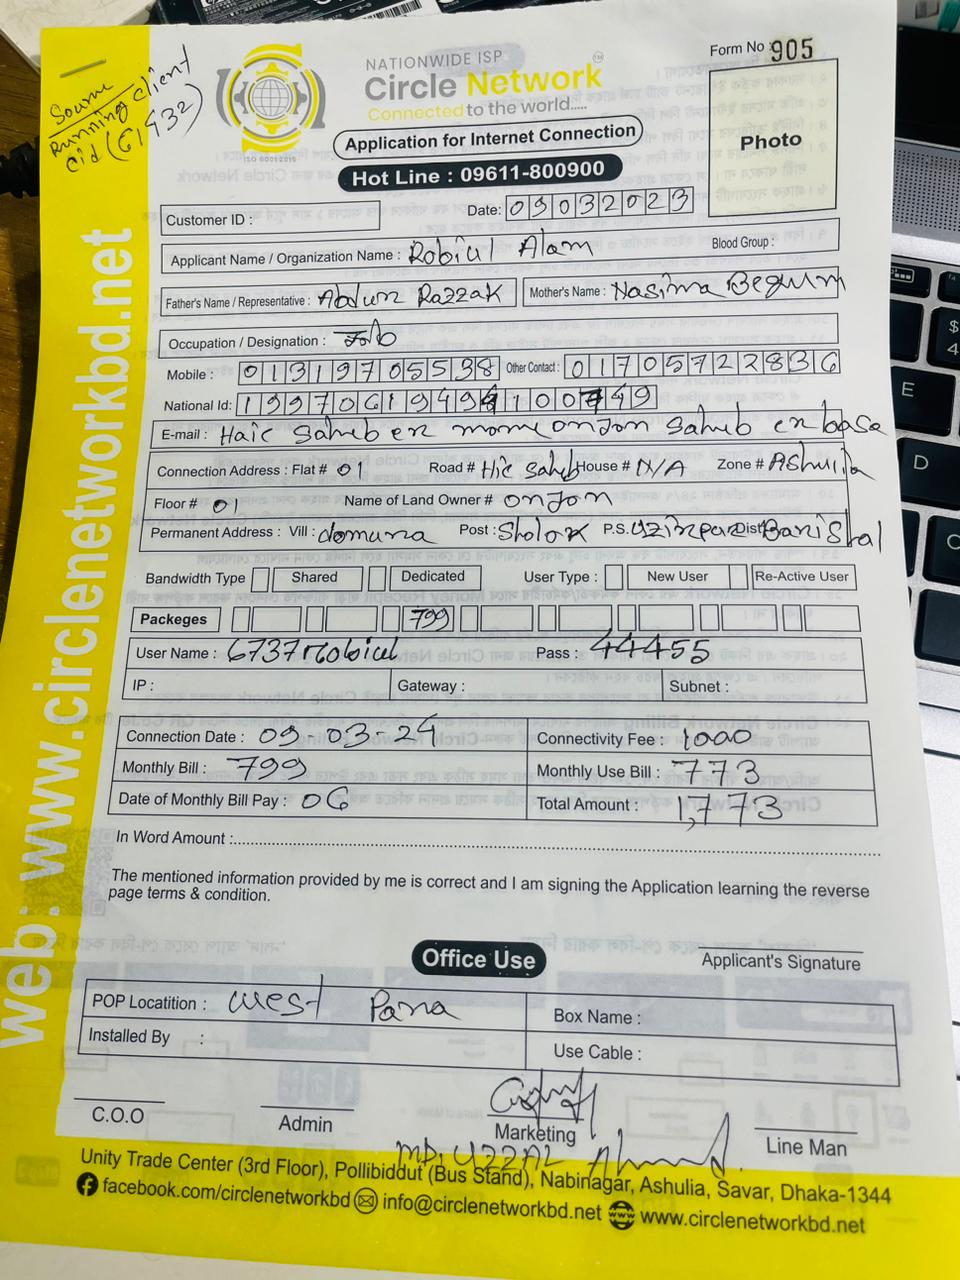 Source
Running client
cid (61932)
NATIONWIDE ISP
Circle Network
Connected to the world.....
ISO 9001:2015
Form No : 905
Photo
Application for Internet Connection
Hot Line : 09611-800900
Customer ID :
Date: 09032023
Applicant Name / Organization Name : Robiul Alam
Blood Group :
Father's Name / Representative : Abdur Razzak Mother's Name : Nasima Begum
Occupation / Designation : Job
Mobile : 01319705538 Other Contact : 01705722836
National Id: 1997061949410049
E-mail : Haic Saheb er mome onjon Saheb er basa
Connection Address : Flat # 01 Road # Hic Saheb House # N/A Zone # Ashulia
Floor # 01 Name of Land Owner # onjon
Permanent Address : Vill : domuna Post : Sholok P.S. Uzirpur Dist Barishal
Bandwidth Type Shared Dedicated User Type : New User Re-Active User
Packeges 799
User Name : 6737robiul Pass : 44455
IP : Gateway : Subnet :
Connection Date : 09-03-24 Connectivity Fee : 1000
Monthly Bill : 799 Monthly Use Bill : 773
Date of Monthly Bill Pay : 06 Total Amount : 1,773
In Word Amount :
The mentioned information provided by me is correct and I am signing the Application learning the reverse
page terms & condition.
Office Use
Applicant's Signature
POP Locatition : west Para Box Name :
Installed By : Use Cable :
C.O.O Admin Marketing Line Man
MD. UZZAL Ahmed
Unity Trade Center (3rd Floor), Pollibiddut (Bus Stand), Nabinagar, Ashulia, Savar, Dhaka-1344
facebook.com/circlenetworkbd info@circlenetworkbd.net www.circlenetworkbd.net
web: www.circlenetworkbd.net